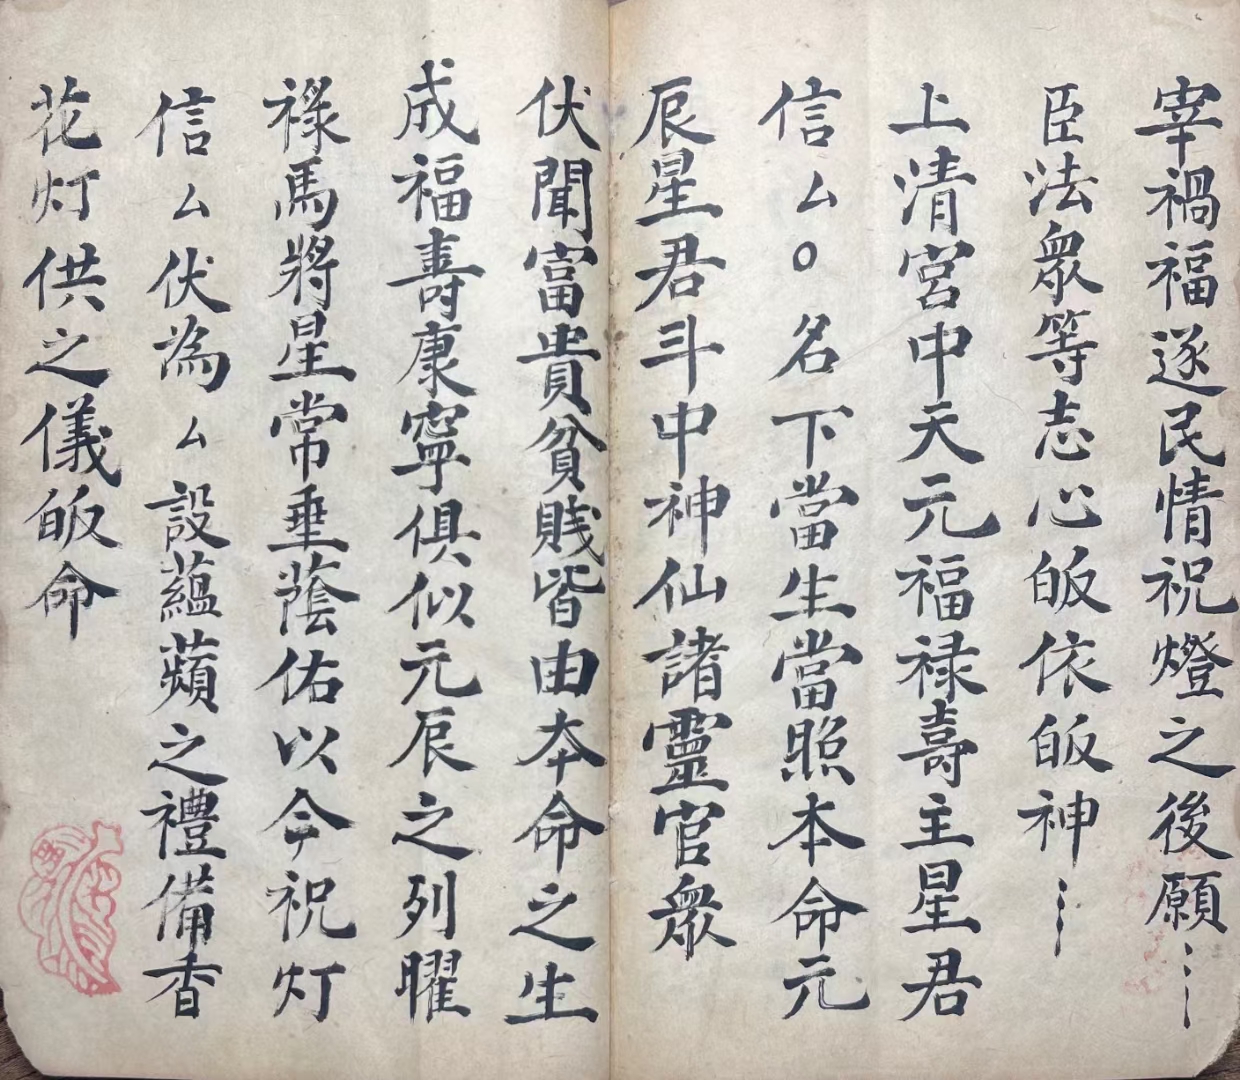 宰禍福遂民情祝燈之後願〻
臣法衆等志心皈依皈神〻
上清宮中天元福禄壽主星君
信厶○名下當生當照本命元
辰星君斗中神仙諸靈官衆
伏聞富貴貧賤皆由本命之生
成福壽康寧俱似元辰之列曜
祿馬將星常垂蔭佑以今祝灯
信厶伏為厶設蘊蘋之禮備香
花灯供之儀皈命